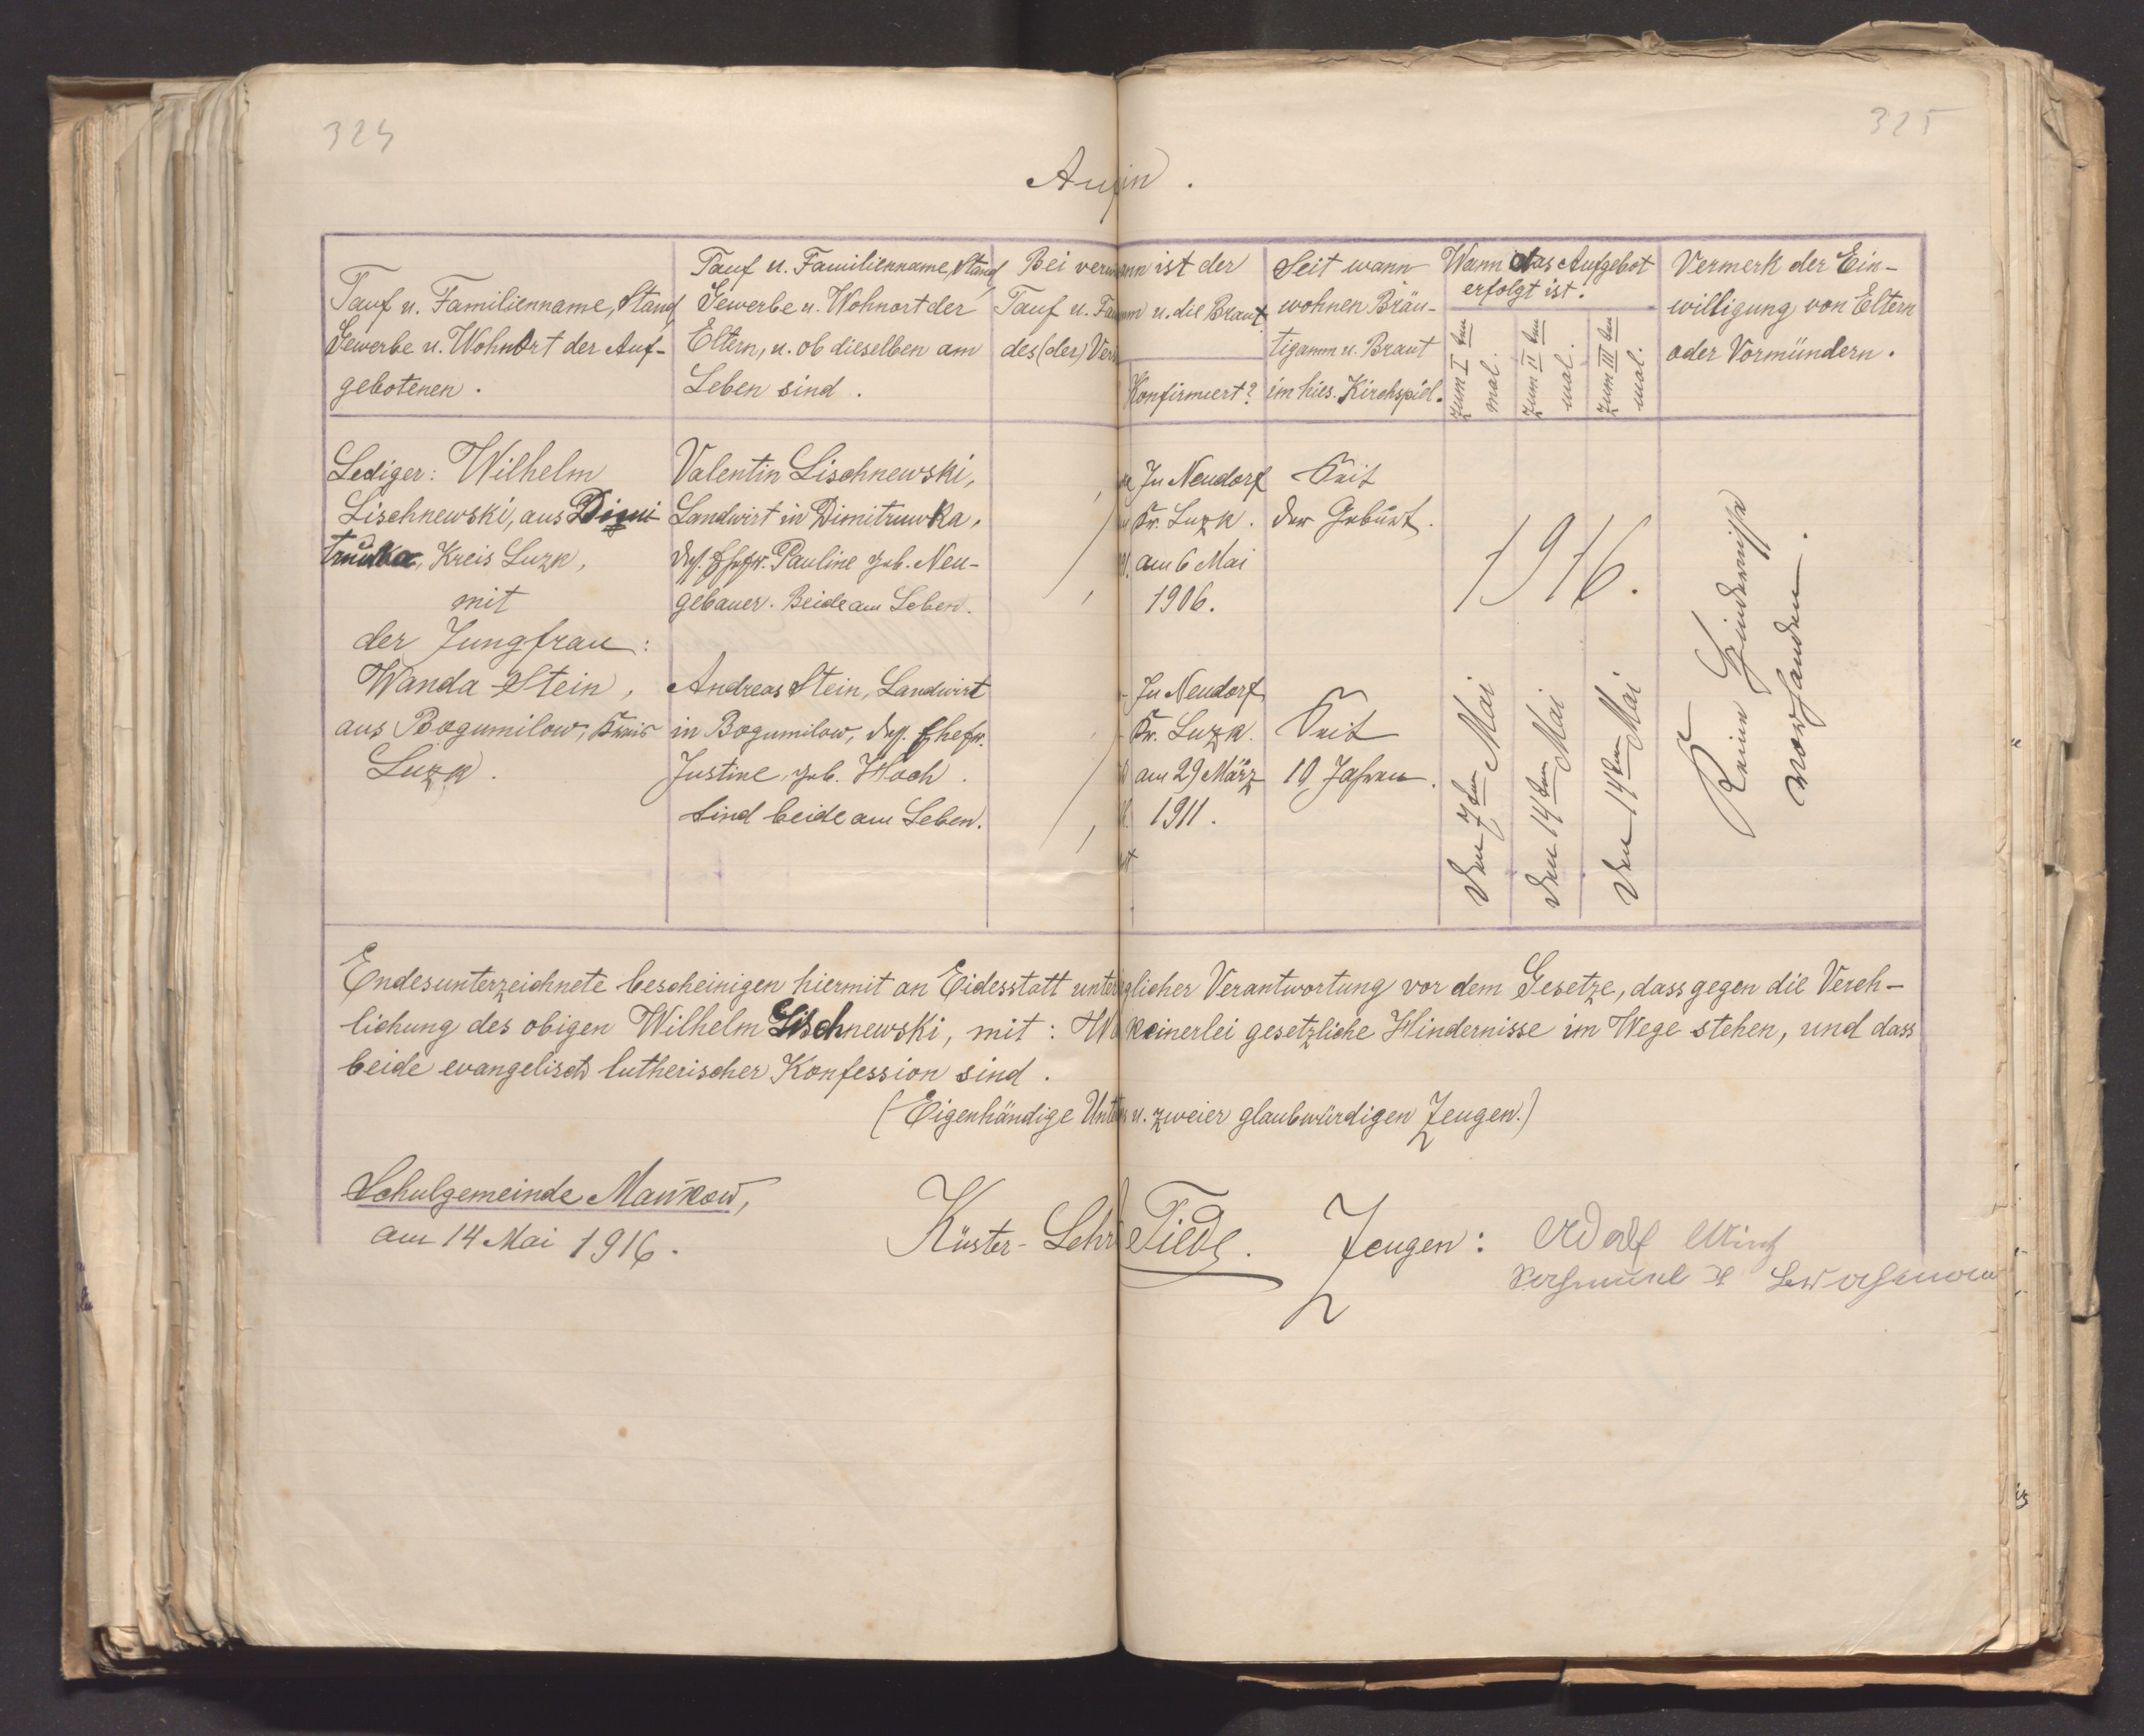 324
325
Auf in.
Tauf u. Familienname, Stand
Gewerbe u. Wohnort der Auf-
gebotenen.
Tauf u. Familienname, Stand,
Gewerbe u. Wohnort der
Eltern, u. ob dieselben am
Leben sind.
Bei verw
Tauf u. Fa
des (der) Ver
ann ist der
m u. die Braut
Konfirmiert?
Seit wann
wohnen Bräu-
tigamm u. Braut
im hies. Kirchspiel.
Wann das Aufgebot
erfolgt ist.
zum I ten
mal.
zum II ten
mal.
zum III ten
mal.
Vermerk der Ein-
willigung von Eltern
oder Vormündern.
Lediger: Wilhelm
Lischnewski, aus Dimi
truwka, Kreis Luzk,
mit
der Jungfrau:
Wanda Stein,
aus Bogumilow, Kreis
Luzk.
Valentin Lischnewski,
Landwirt in Dimitruwka,
dess. Ehefr. Pauline geb. Neu-
gebauer. Beide am Leben.
Andreas Stein, Landwirt
in Bogumilow, dess. Ehefr.
Justine, geb. Hoch.
Sind beide am Leben.
In Neudorf
Kr. Luzk.
am 6 Mai
1906.
In Neudorf
Kr. Luzk.
am 29 März
1911.
Seit
der Geburt.
Seit
10 Jahren.
1916.
Den 7ten Mai
Den 14ten Mai
Den 14ten Mai
Keine Hindernisse
vorhanden.
Endesunterzeichnete bescheinigen hiermit an Eidesstatt unter glicher Verantwortung vor dem Gesetze, dass gegen die Vereh-
lichung des obigen Wilhelm Lischnewski, mit: Wa keinerlei gesetzliche Hindernisse im Wege stehen, und dass
beide evangelisch lutherischer Konfession sind.
(Eigenhändige Unter u. zweier glaubwürdigen Zeugen.)
Schulgemeinde Mańkow,
am 14 Mai 1916.
Küster-Lehr Tiede.
Zeugen: Adolf